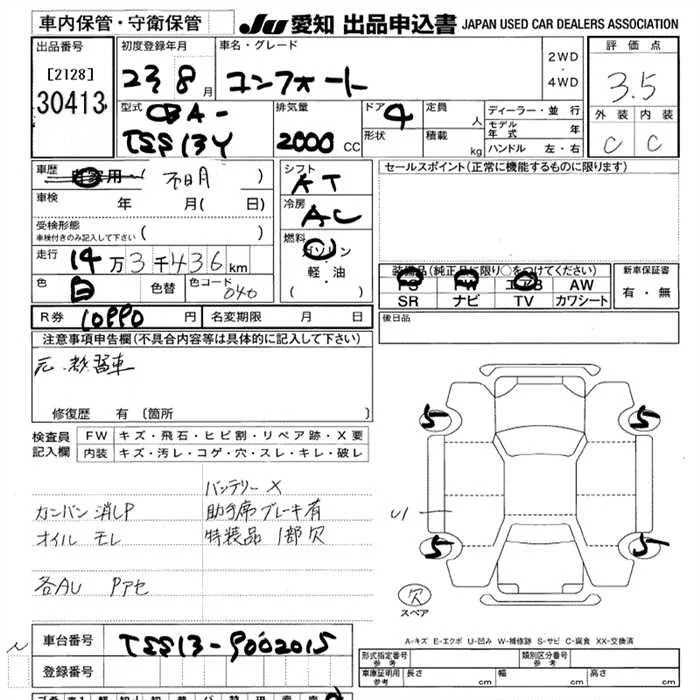 車内保管・守衛保管
JU 愛知 出品申込書 JAPAN USED CAR DEALERS ASSOCIATION
出品番号
[2128]
30413
初度登録年月
23 8月
車名・グレード
コンフォート
2WD
・
4WD
評価点
3.5
外装 内装
C C
型式 CBA-
TSS13Y
排気量
2000 CC
ドア 4
形状
定員 人
積載 kg
ディーラー・並行
モデル年式 年
ハンドル 左・右
車歴 自家用 ( 不明 )
車検 年 月( 日)
受検形態
車検付きのみ記入して下さい ( )
走行 14万3千436km
色 白 色替 色コード 040
シフト
AT
冷房
AC
燃料
ガソリン
軽・油
( )
セールスポイント(正常に機能するものに限ります)
装備品(純正品に限り○をつけてください)
PS PW エアB AW
SR ナビ TV カワシート
新車保証書
有・無
R券 10990 円 名変期限 月 日
後日品
注意事項申告欄(不具合内容等は具体的に記入して下さい)
元教習車
修復歴 有(箇所
検査員
記入欄
FW キズ・飛石・ヒビ割・リペア跡・X要
内装 キズ・汚レ・コゲ・穴・スレ・キレ・破レ
バッテリーX
カンバン消しP 助手席ブレーキ有
オイルモレ 特装品 1部欠
各AU Pアセ
5 5
U1
5 5
欠
スペア
A-キズ E-エクボ U-凹み W-補修跡 S-サビ C-腐食 XX-交換済
車台番号 TSS13-9002015
登録番号
形式指定番号
参考
類別区分番号
参考
車庫証明用
参考
長さ cm 幅 cm 高さ cm